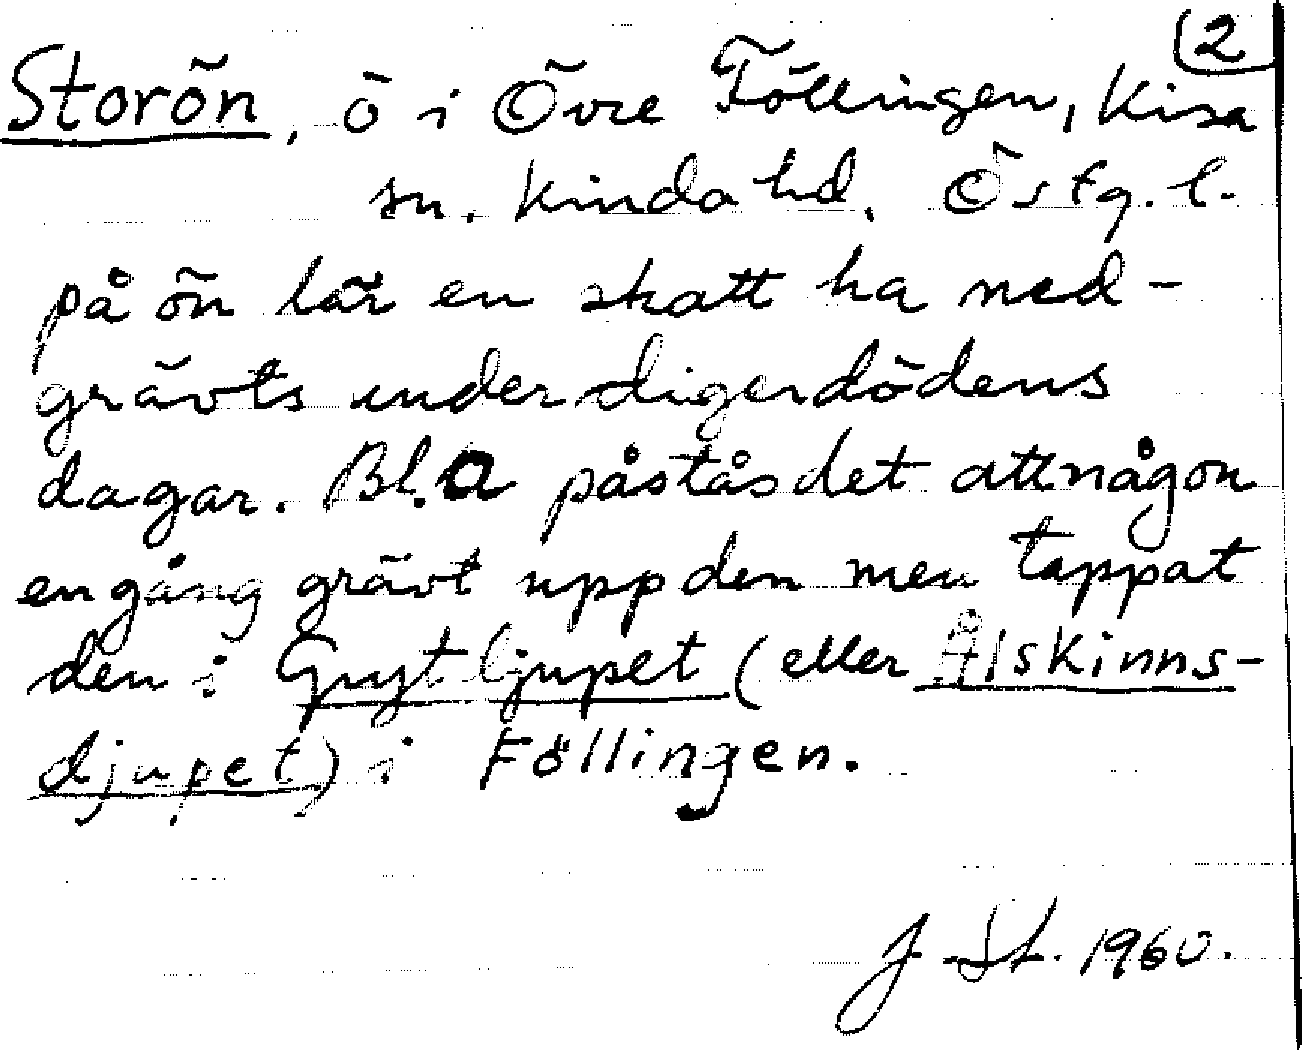 2
Storön, ö i Övre Föllingen, Kisa
sn. Kinda hd. Östg. l.
på ön lär en skatt ha ned-
grävts under digerdödens
dagar. Bl.a påstås det att någon
engång grävt upp den men tappat
den i Grytljupet (eller Ålskinns-
djupet) i Föllingen.
J. St. 1960.